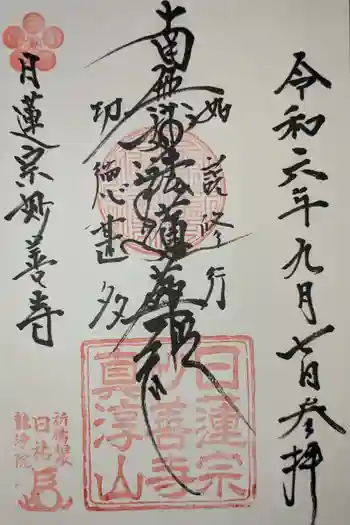 令和六年九月七日参拝
如説修行
南無妙法蓮華経
功徳甚多
日蓮宗
妙善寺
真淳山
日蓮宗妙善寺
日祐